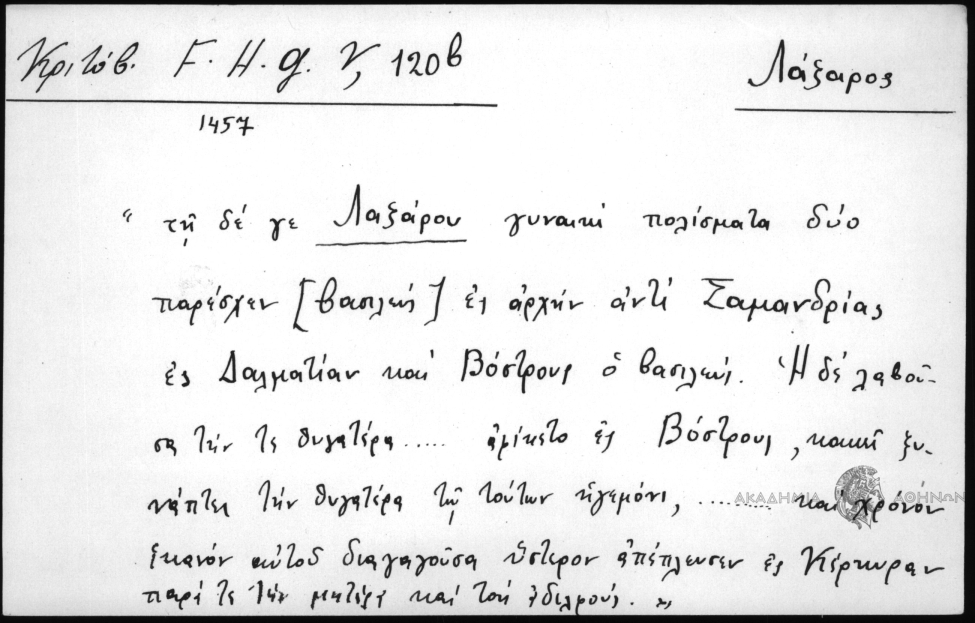 Κριτόβ. F. H. G. V, 120β
Λάξαρος
1457
“ τῇ δέ γε Λαξάρου γυναικί πολίσματα δύο
παρέσχεν [βασιλεύς] ἐς ἀρχήν ἀντί Σαμανδρίας
ἐς Δαλματίαν καί Βόστρους ὁ βασιλεύς. Ἡ δέ λαβοῦ-
σα τήν τε θυγατέρα ..... ἀφίκετο ἐς Βόστρους, κἀκεῖ ξυ-
νάπτει τήν θυγατέρα τῷ τούτων ἡγεμόνι, ......... καί χρόνον
ἱκανόν αὐτοῦ διαγαγοῦσα ὕστερον ἀπέπλευσεν ἐς Κέρκυραν
παρά τε τήν μητέρα καί τούς ἀδελφούς. „
ΑΚΑΔΗΜΙΑ ΑΘΗΝΩΝ